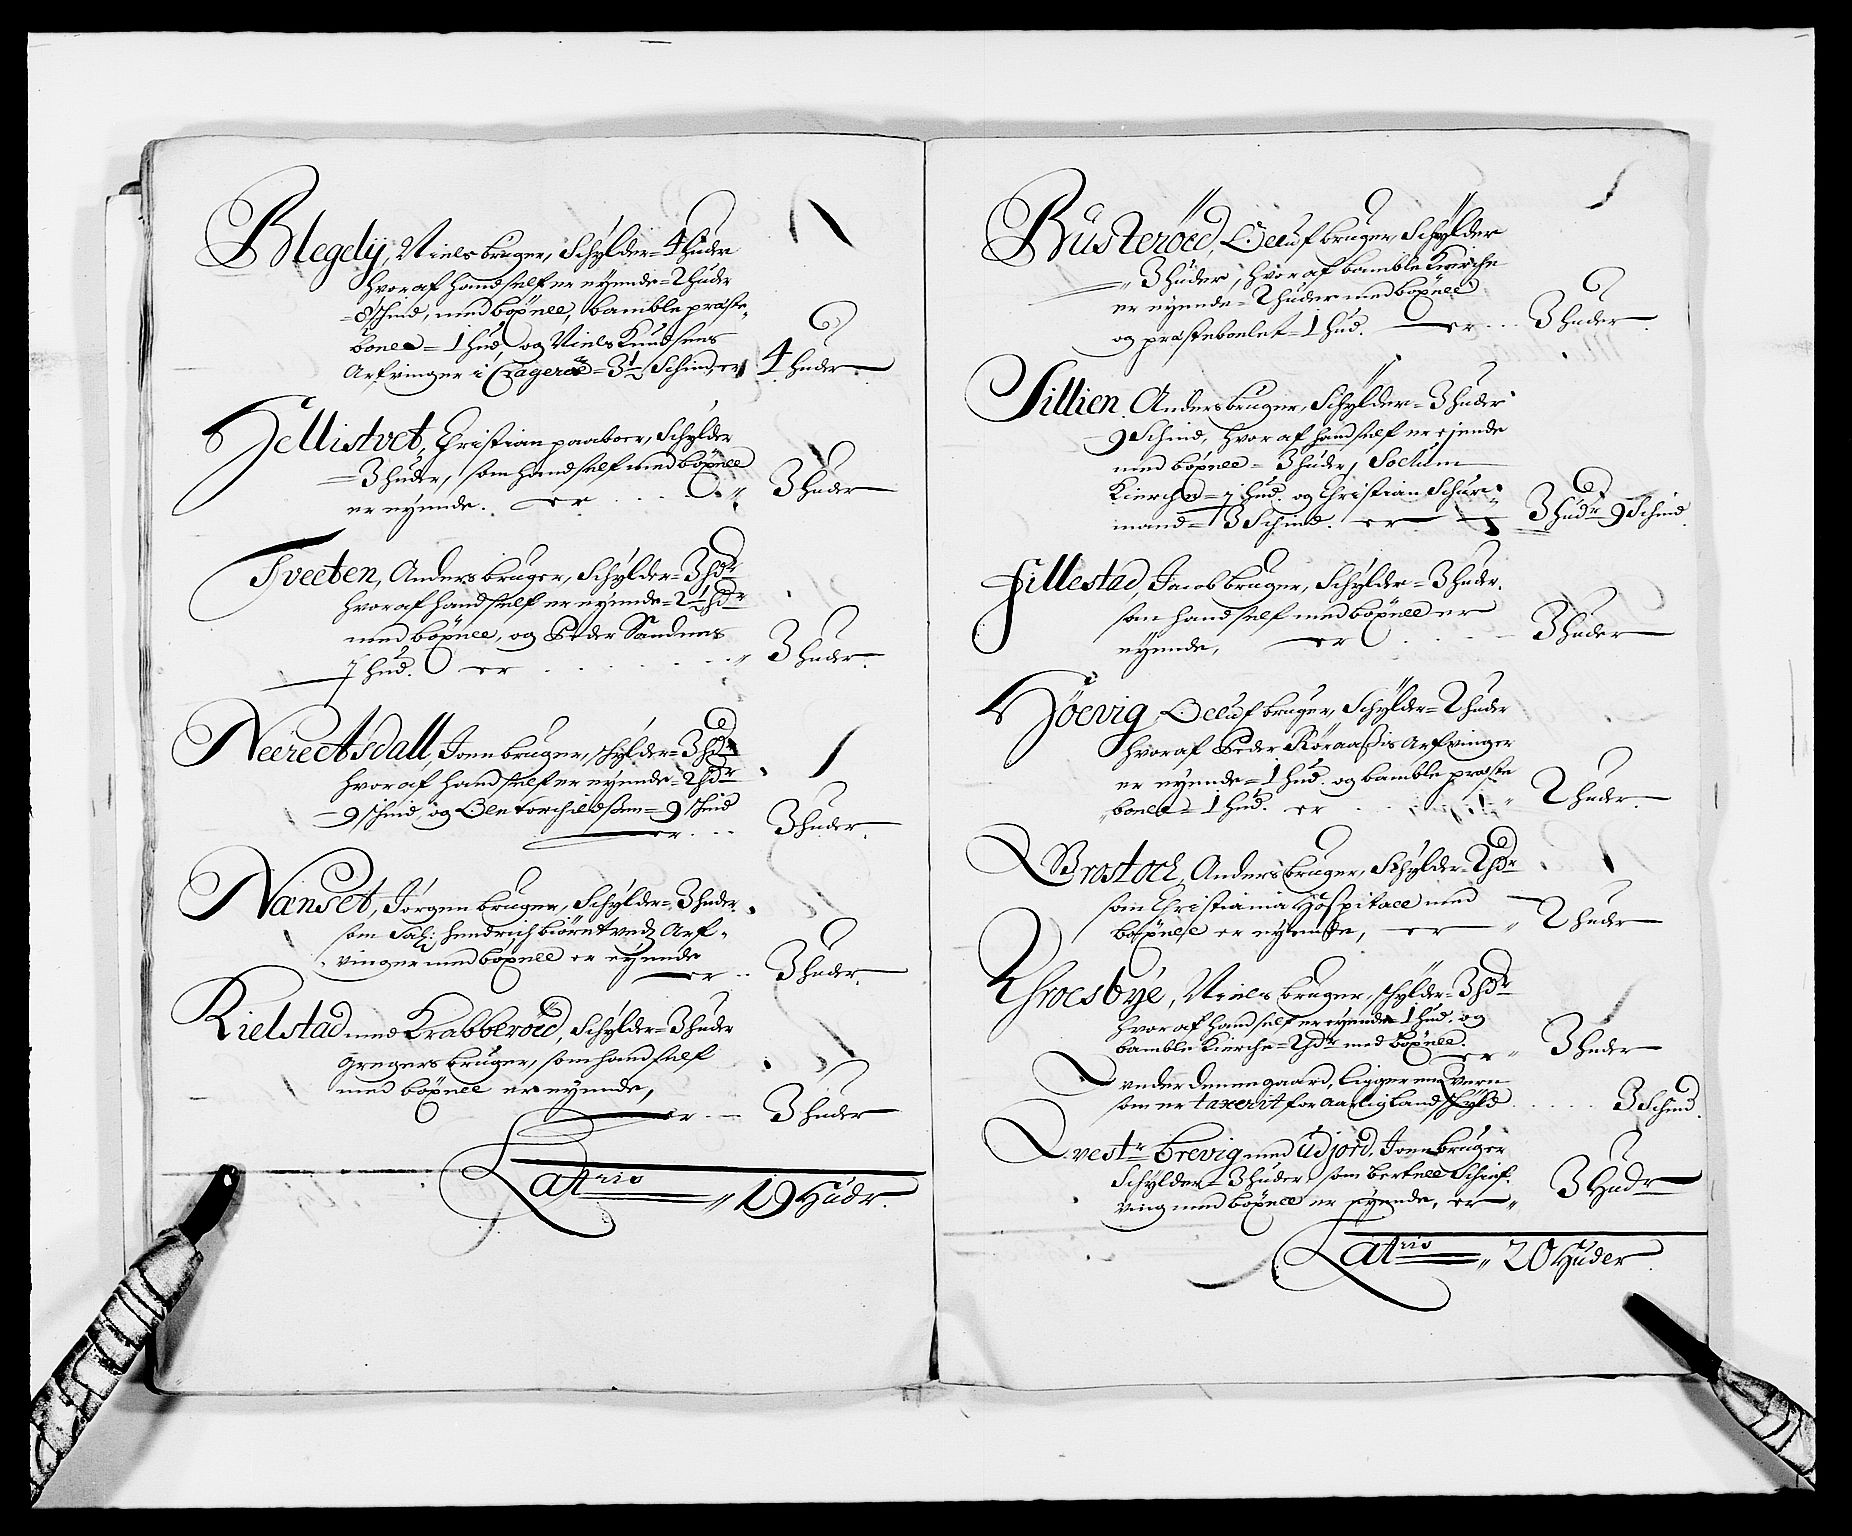 Blegelÿ, Niels bruger, Schylder = 4 huder
hvoraf hand self er eyende = 2 huder
= 8 schind, med böxell, bamble præste-
bonel = 1 hud og Niels Knudsens
Arfvinger i Cragerøe = 3½ Schind, er 4 huder
Hellistvet, Christian paaboer, Schylder
= 3 huder, som hand self med böxell
er eyende. er 3 huder
Tveeten, Anders bruger, Schylder = 3 hdr
hvoraf hand self er eyende = 2½ hdr
med böxell, og Peder Sandnes
½ hud. er 3 huder.
Neerectsdall, Joen bruger, schylder = 3 hdr
hvoraf hand self er eyende = 2 hdr
9 schind, og Ole torchildßen = 9 schind
er 3 huder.
Nænset, Jörgen bruger, Schylder = 3 huder
som Sal: hendrich biörntvedz Arf-
vinger med böxell er eyende
er 3 huder.
Kielstad med Krabberöed, Schylder = 3 huder
Gregers bruger, som hand self
med böxell er eyende,
er 3 huder
Latris 19 Hüdr.
Büsteröed, Oeluf bruger, Schylder
3 huder, hvoraf bamble Kierche
er eyende = 2 huder med böxell
og præstebonlet = 1 hud. er 3 huder.
Tillien, Anders bruger, Schylder = 3 huder
9 Schind, hvoraf hand self er ejende
med böxell = 3 huder, Sochum
Kierche = ½ hud. og Christian Schuri-
mand = 3 Schind. er 3 hudr 9 Schind.
Fillestad, Jacob bruger, Schylder = 3 huder.
som hand self med böxell er
eyende, er 3 huder
Höevig, Oeluf bruger, Schylder = 2 huder
hvoraf Peder Köraaßis Arfvinger
er eyende = 1 hud. og bamble præste
bonel = 1 hud. er 2 huder.
Brostoch, Anders bruger, Schylder = 2 hdr
som Christiania Hospitall med
böxelse er eyende, er 2 huder
Throesbye, Niels bruger, schylder = 3 hdr
hvoraf hand self er eyende 1 hud. og
bamble Kierche = 2 hdr med böxell.
er 3 huder
Vnder denne gaard, ligger en Qvern
som er taxerit for aarlig landschyld 3 Schind.
Vestr Brevig med Üdjord, Joen bruger
Schylder = 3 huder som bertell Schief-
ving med böxell er eyende, er 3 Hudr
Latris 20 Hüder.